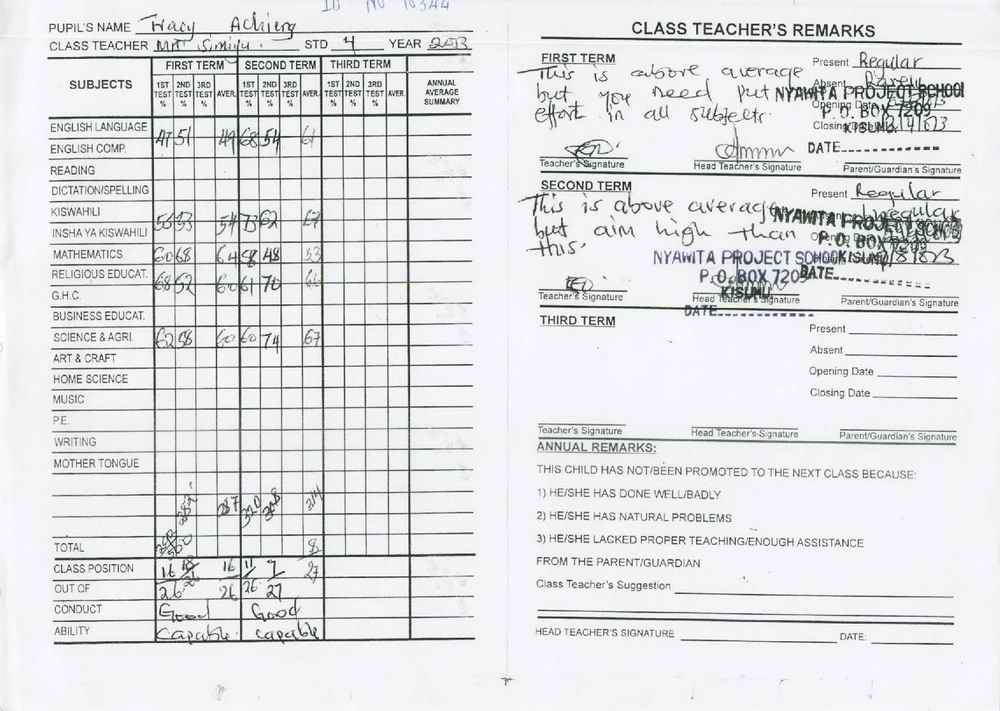 ID NO 10344
PUPIL'S NAME Tracy Achieng
CLASS TEACHER Mr. Simiyu. STD 4 YEAR 2013
SUBJECTS FIRST TERM SECOND TERM THIRD TERM
1ST TEST % 2ND TEST % 3RD TEST % AVER. 1ST TEST % 2ND TEST % 3RD TEST % AVER. 1ST TEST % 2ND TEST % 3RD TEST % AVER. ANNUAL AVERAGE SUMMARY
ENGLISH LANGUAGE
ENGLISH COMP. 47 51 49 68 54 61
READING
DICTATION/SPELLING
KISWAHILI
INSHA YA KISWAHILI 53 54 73 62 67
MATHEMATICS 60 68 64 58 48 53
RELIGIOUS EDUCAT.
G.H.C. 68 52 60 61 70 66
BUSINESS EDUCAT.
SCIENCE & AGRI. 62 58 60 60 74 67
ART & CRAFT
HOME SCIENCE
MUSIC
P.E.
WRITING
MOTHER TONGUE
287 320 308 314
TOTAL
CLASS POSITION 16 18 16 11 7 8
OUT OF 26 26 26 26 27 27
CONDUCT Good Good
ABILITY Capable. capable
CLASS TEACHER'S REMARKS
FIRST TERM Present Regular
This is above average Absent Rarely
but you need put Opening Date
effort in all subjects. Closing Date
NYAWITA PROJECT SCHOOL
P. O. BOX 7209
KISUMU
DATE
Teacher's Signature Head Teacher's Signature Parent/Guardian's Signature
SECOND TERM Present Regular
This is above average Irregular
but aim high than
this.
NYAWITA PROJECT SCHOOL
P. O. BOX 7209
KISUMU
DATE
NYAWITA PROJECT SCHOOL
P. O. BOX 7209
KISUMU
DATE
Teacher's Signature Head Teacher's Signature Parent/Guardian's Signature
THIRD TERM Present
Absent
Opening Date
Closing Date
Teacher's Signature Head Teacher's Signature Parent/Guardian's Signature
ANNUAL REMARKS:
THIS CHILD HAS NOT/BEEN PROMOTED TO THE NEXT CLASS BECAUSE:
1) HE/SHE HAS DONE WELL/BADLY
2) HE/SHE HAS NATURAL PROBLEMS
3) HE/SHE LACKED PROPER TEACHING/ENOUGH ASSISTANCE
FROM THE PARENT/GUARDIAN
Class Teacher's Suggestion
HEAD TEACHER'S SIGNATURE DATE: